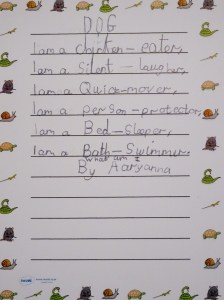 DOG
I am a chicken-eater,
I am a Silent-laugher,
I am a Quick-mover,
I am a person-protector,
I am a Bed-Sleeper,
I am a Bath-Swimmer,
what am I
By Aaryanna